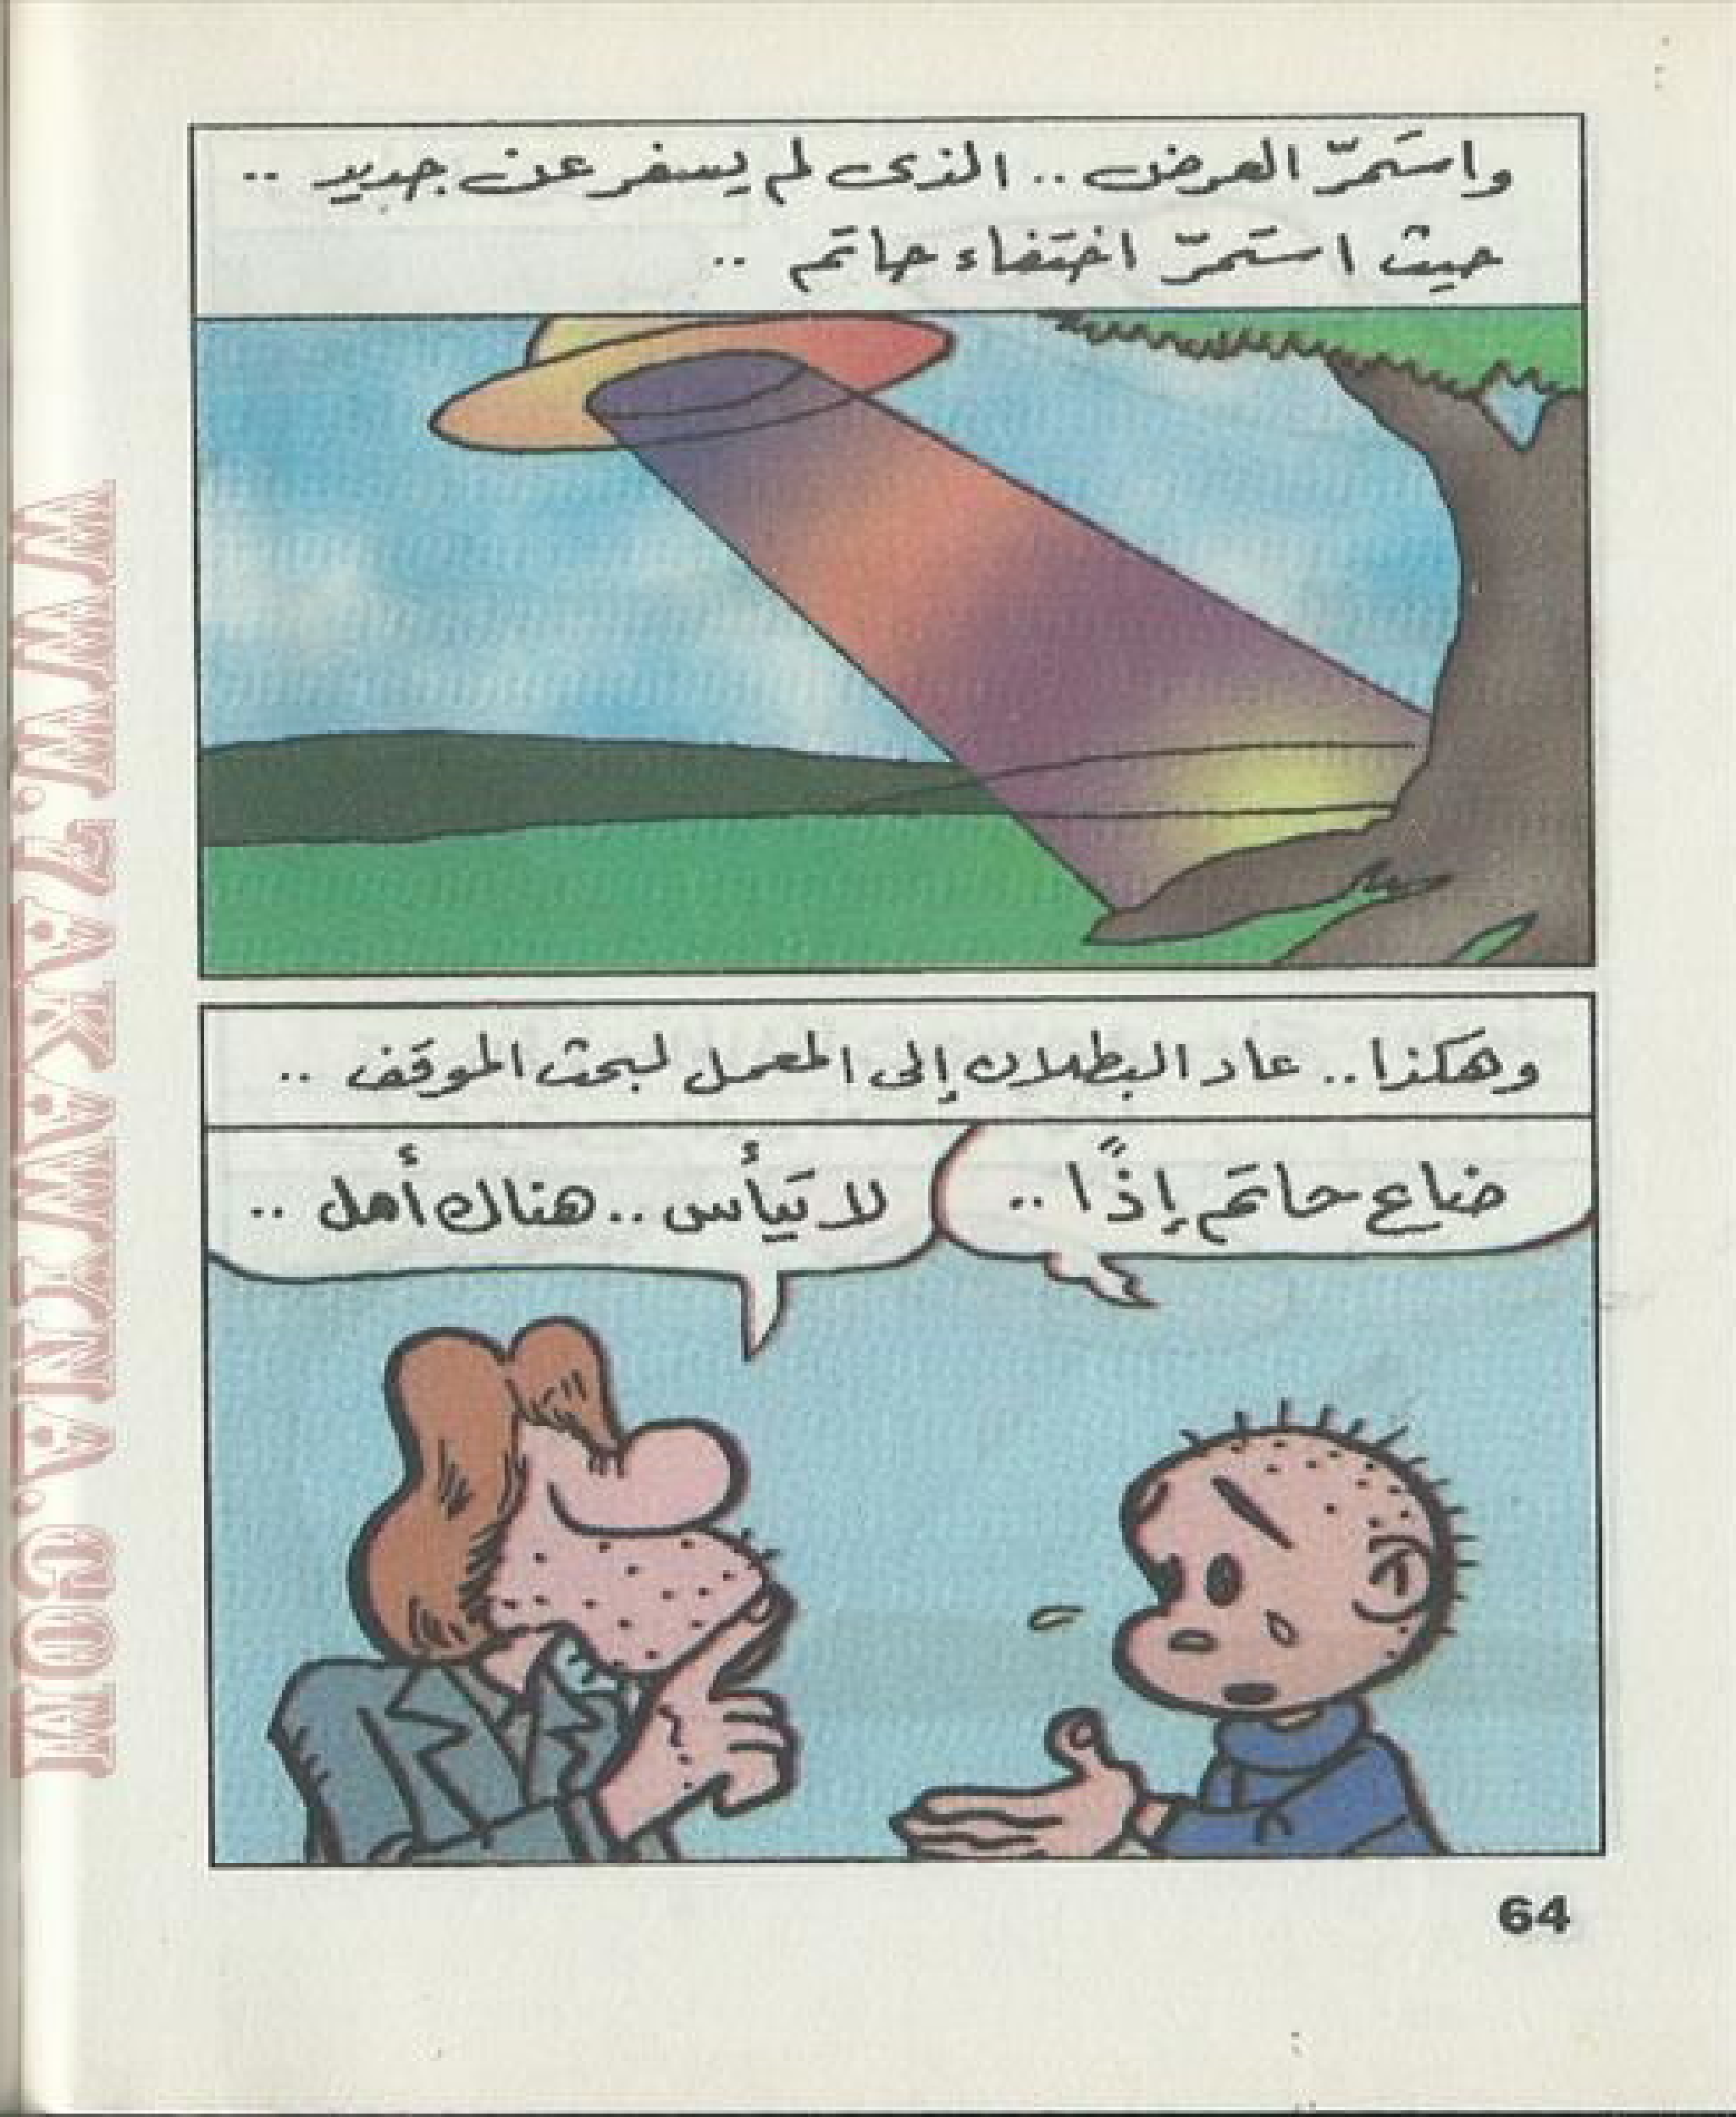 واستَمرّ العرض .. الذى لم يسفر عن جديد ..
حيث استَمرّ اختفاء حاتم ..
وهكذا .. عاد البطلان إلى المعمل لبحث الموقف ..
ضاع حاتم إذًا ..
لا تيأس .. هناك أمل ..
64
WWW.7AKAWIINA.COM